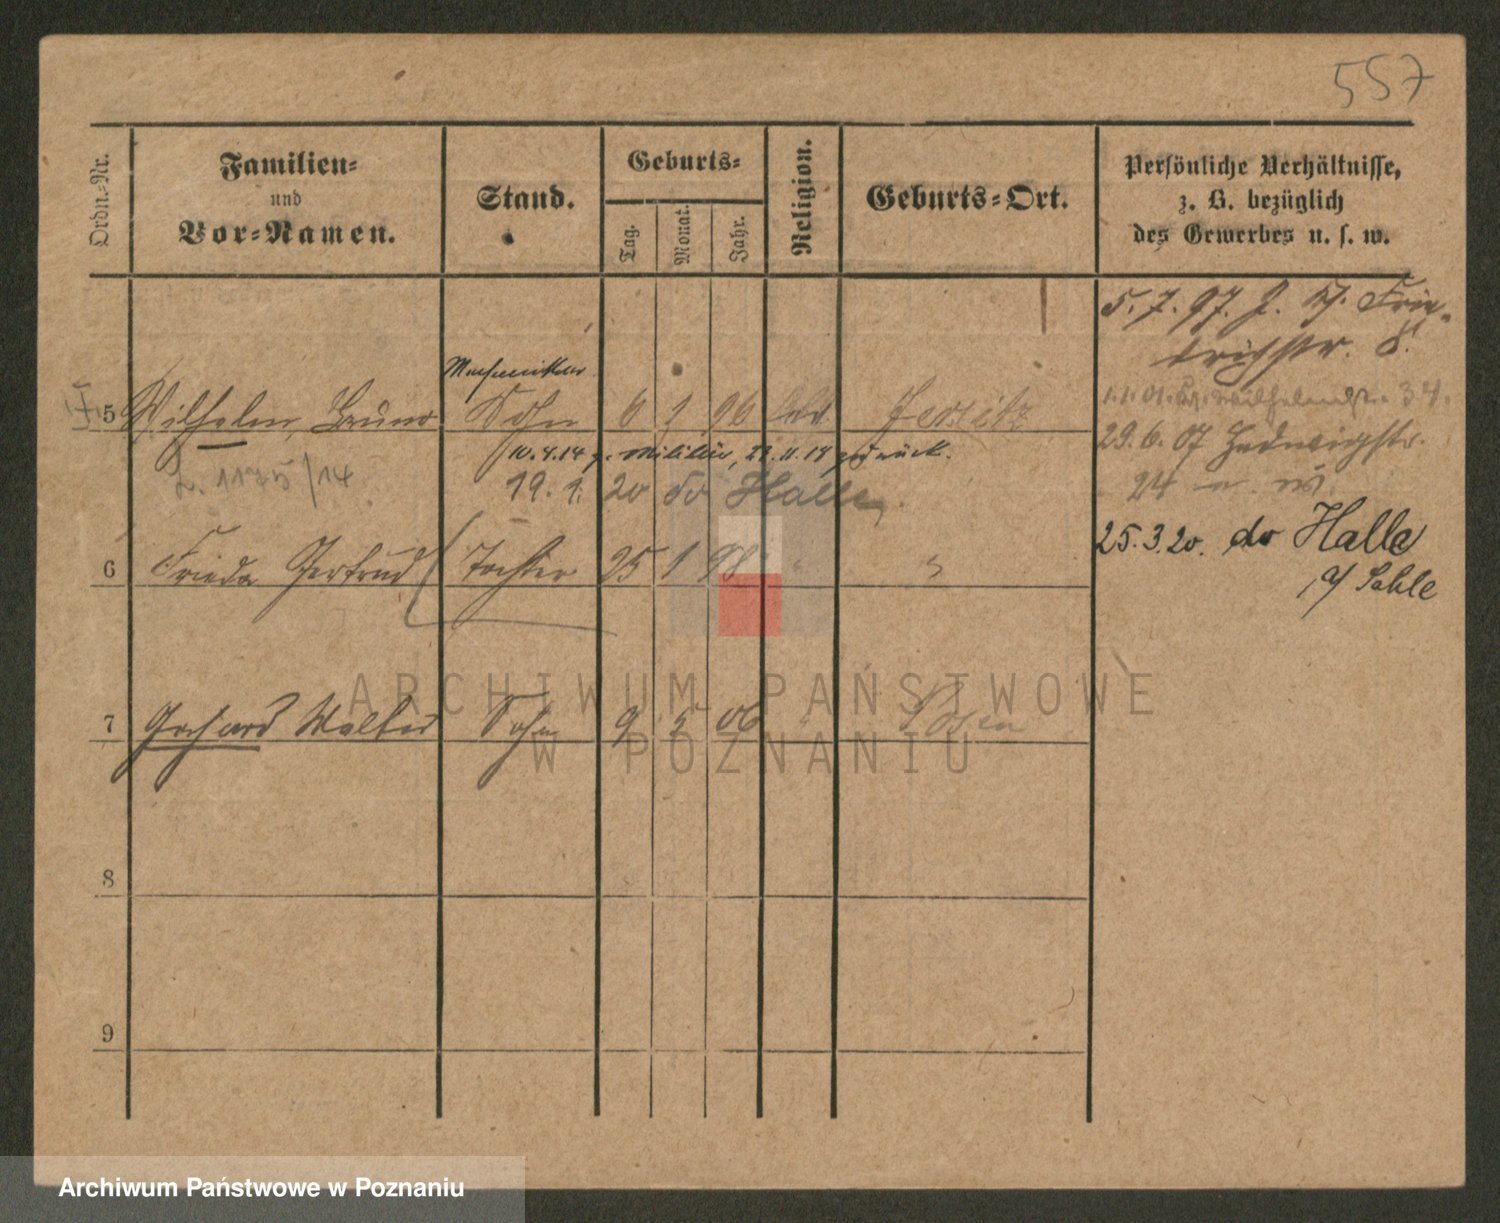 557
Ordn.-Nr.
Familien-
und
Vor-Namen.
Stand.
Geburts-
Tag.
Monat.
Jahr.
Religion.
Geburts-Ort.
Persönliche Verhältnisse,
z. B. bezüglich
des Gewerbes u. s. w.
5. 7. 97. J. Frie-
drichstr. 8.
Mechaniker
5 Wilhelm, Bruno Sohn 6 1 96 Jersitz
1.1.01. Wilhelmstr. 34.
29. 6. 07 Hedwigstr.
10.4.14 z. Militär, 29.11.18 zurück.
L. 1175/14 19. 1. 20 do Halle
24
25. 3. 20. do Halle
a/ Sahle
6 Frieda Gertrud Tochter 25 1 98 "
7 Gerhard Walter Sohn 9 5 06 " Posen
8
9
ARCHIWUM PAŃSTWOWE
W POZNANIU
Archiwum Państwowe w Poznaniu